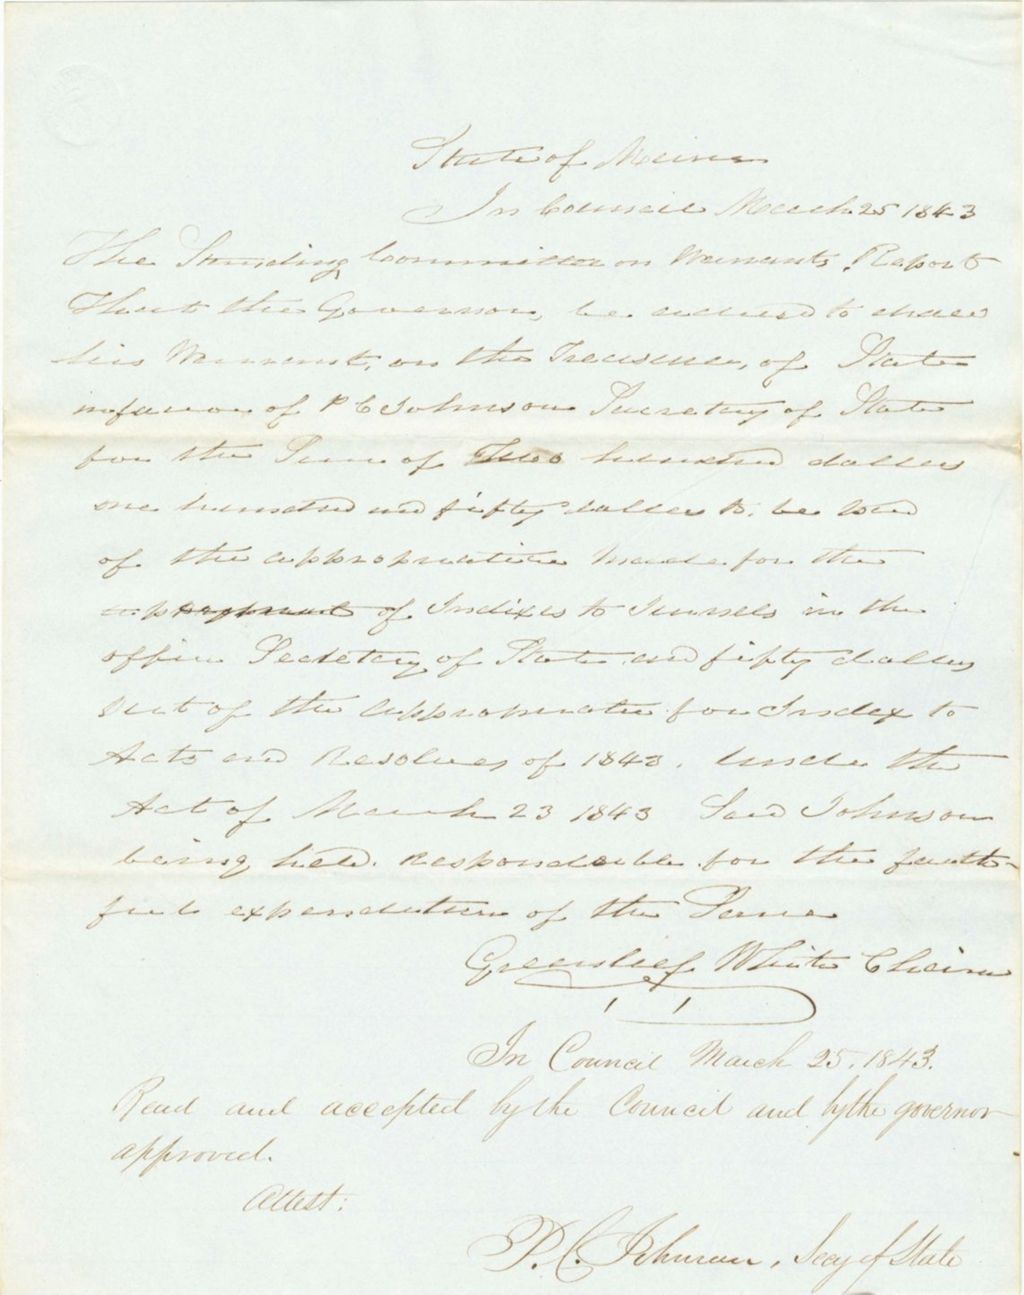 State of Maine
In Council March 25 1843
The Standing Committee on Warrants, Report
That the Governor, be advised to draw
his Warrant, on the Treasurer, of State
in favor of P C Johnson Secretary of State
for the Sum of Two hundred dollars
one hundred and fifty dollars to be used
of the appropriation made for the
of Indixes to Jurnels in the
office Secretary of State and fifty dollars
out of the appropriation for Index to
Acts and Resolves of 1843. Under the
Act of March 23 1843 Said Johnson
being held Responsible for the faith-
full expenditure of the Same
Greenlief White Chairm
In Council March 25, 1843.
Read and accepted by the Council and by the governor
approved.
Attest:
P. C. Johnson, Secy of State